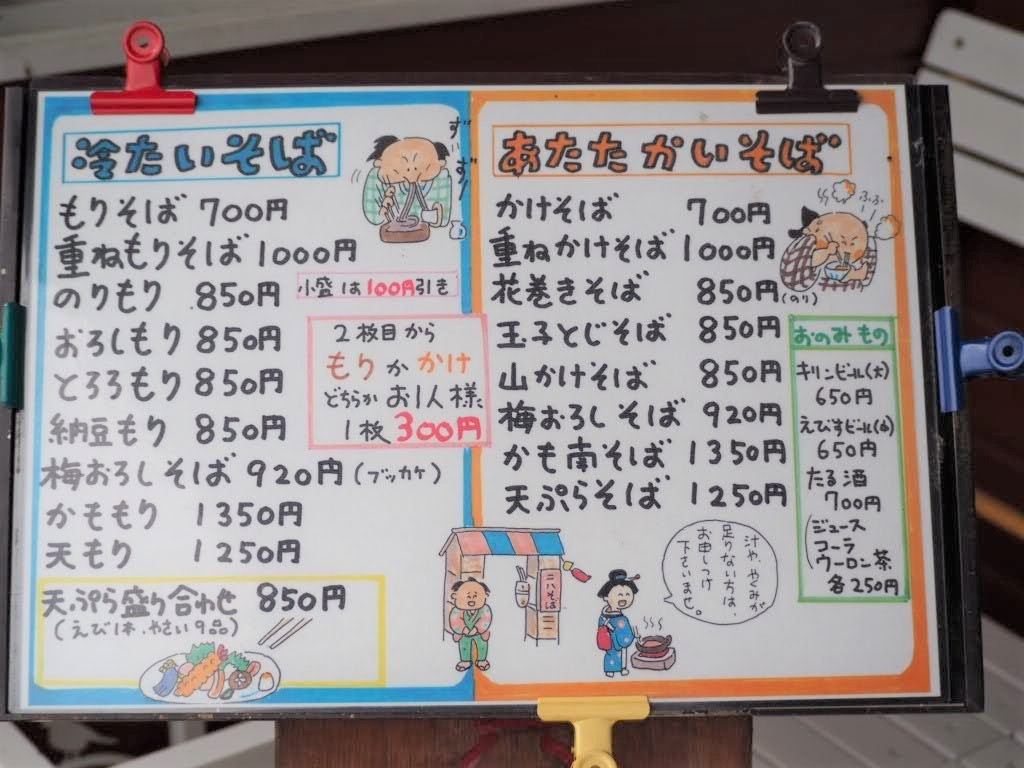 冷たいそば
ずーずー
もりそば 700円
重ねもりそば 1000円
のりもり 850円
小盛は100円引き
おろしもり 850円
とろろもり 850円
納豆もり 850円
2枚目から
もりかかけ
どちらかお1人様
1枚300円
梅おろしそば 920円(ブッカケ)
かももり 1350円
天もり 1250円
天ぷら盛り合わせ 850円
(えび1本、やさい9品)
あたたかいそば
ふぅふぅ
かけそば 700円
重ねかけそば 1000円
花巻きそば 850円(のり)
玉子とじそば 850円
山かけそば 850円
梅おろしそば 920円
かも南そば 1350円
天ぷらそば 1250円
おのみもの
キリンビール(大)
650円
えびすビール(小)
650円
たる酒
700円
(ジュース
コーラ
ウーロン茶
各250円
二八そば
汁や、やくみが
足りない方は、
お申しつけ
下さいませ。